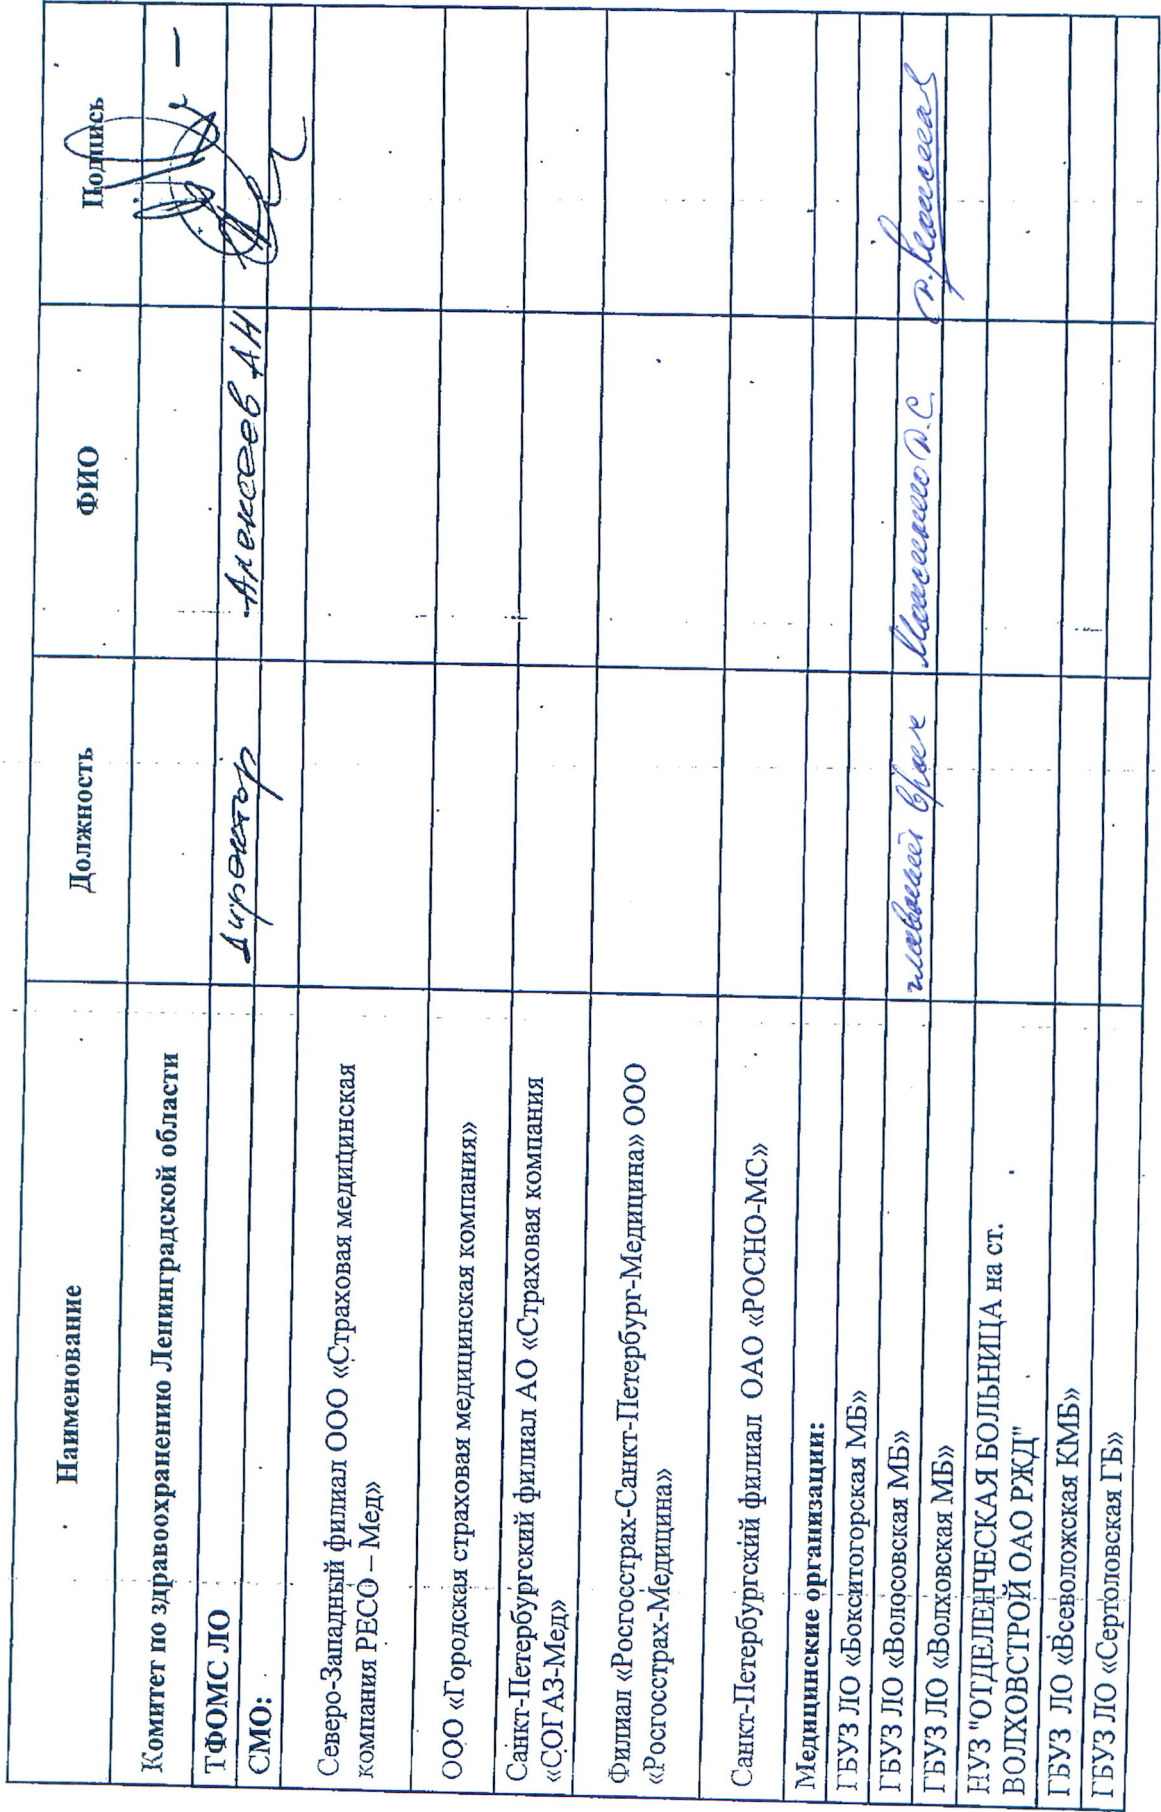 Наименование Должность ФИО Подпись
Комитет по здравоохранению Ленинградской области
ТФОМС ЛО Директор Алексеев АН
СМО:
Северо-Западный филиал ООО «Страховая медицинская
компания РЕСО – Мед»
ООО «Городская страховая медицинская компания»
Санкт-Петербургский филиал АО «Страховая компания
«СОГАЗ-Мед»
Филиал «Росгосстрах-Санкт-Петербург-Медицина» ООО
«Росгосстрах-Медицина»
Санкт-Петербургский филиал ОАО «РОСНО-МС»
Медицинские организации:
ГБУЗ ЛО «Бокситогорская МБ»
ГБУЗ ЛО «Волосовская МБ»
ГБУЗ ЛО «Волховская МБ» главный врач
НУЗ "ОТДЕЛЕНЧЕСКАЯ БОЛЬНИЦА на ст.
ВОЛХОВСТРОЙ ОАО РЖД"
ГБУЗ ЛО «Всеволожская КМБ»
ГБУЗ ЛО «Сертоловская ГБ»